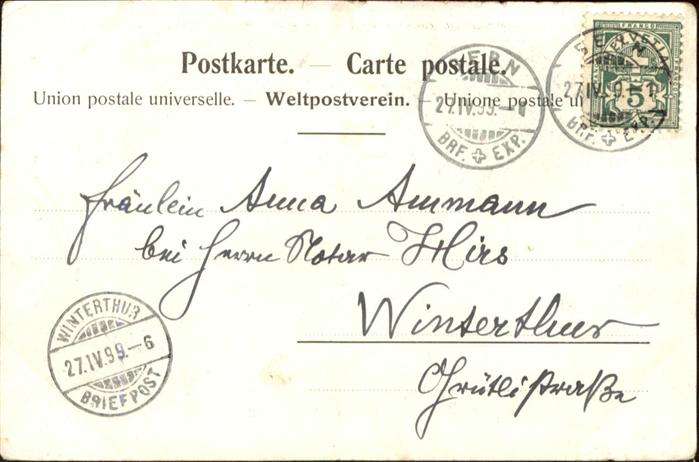 Postkarte. — Carte postale.
Union postale universelle. — Weltpostverein. — Unione postale u
BERN
27.IV.99.-1
BRF. EXP.
BERN
27.IV.99.-1
BRF. EXP.
FRANCO
5
Fräulein Anna Ammann
bei Herrn Notar Hirs
Winterthur
Grütlistraße
WINTERTHUR
27.IV.99.-6
BRIEFPOST